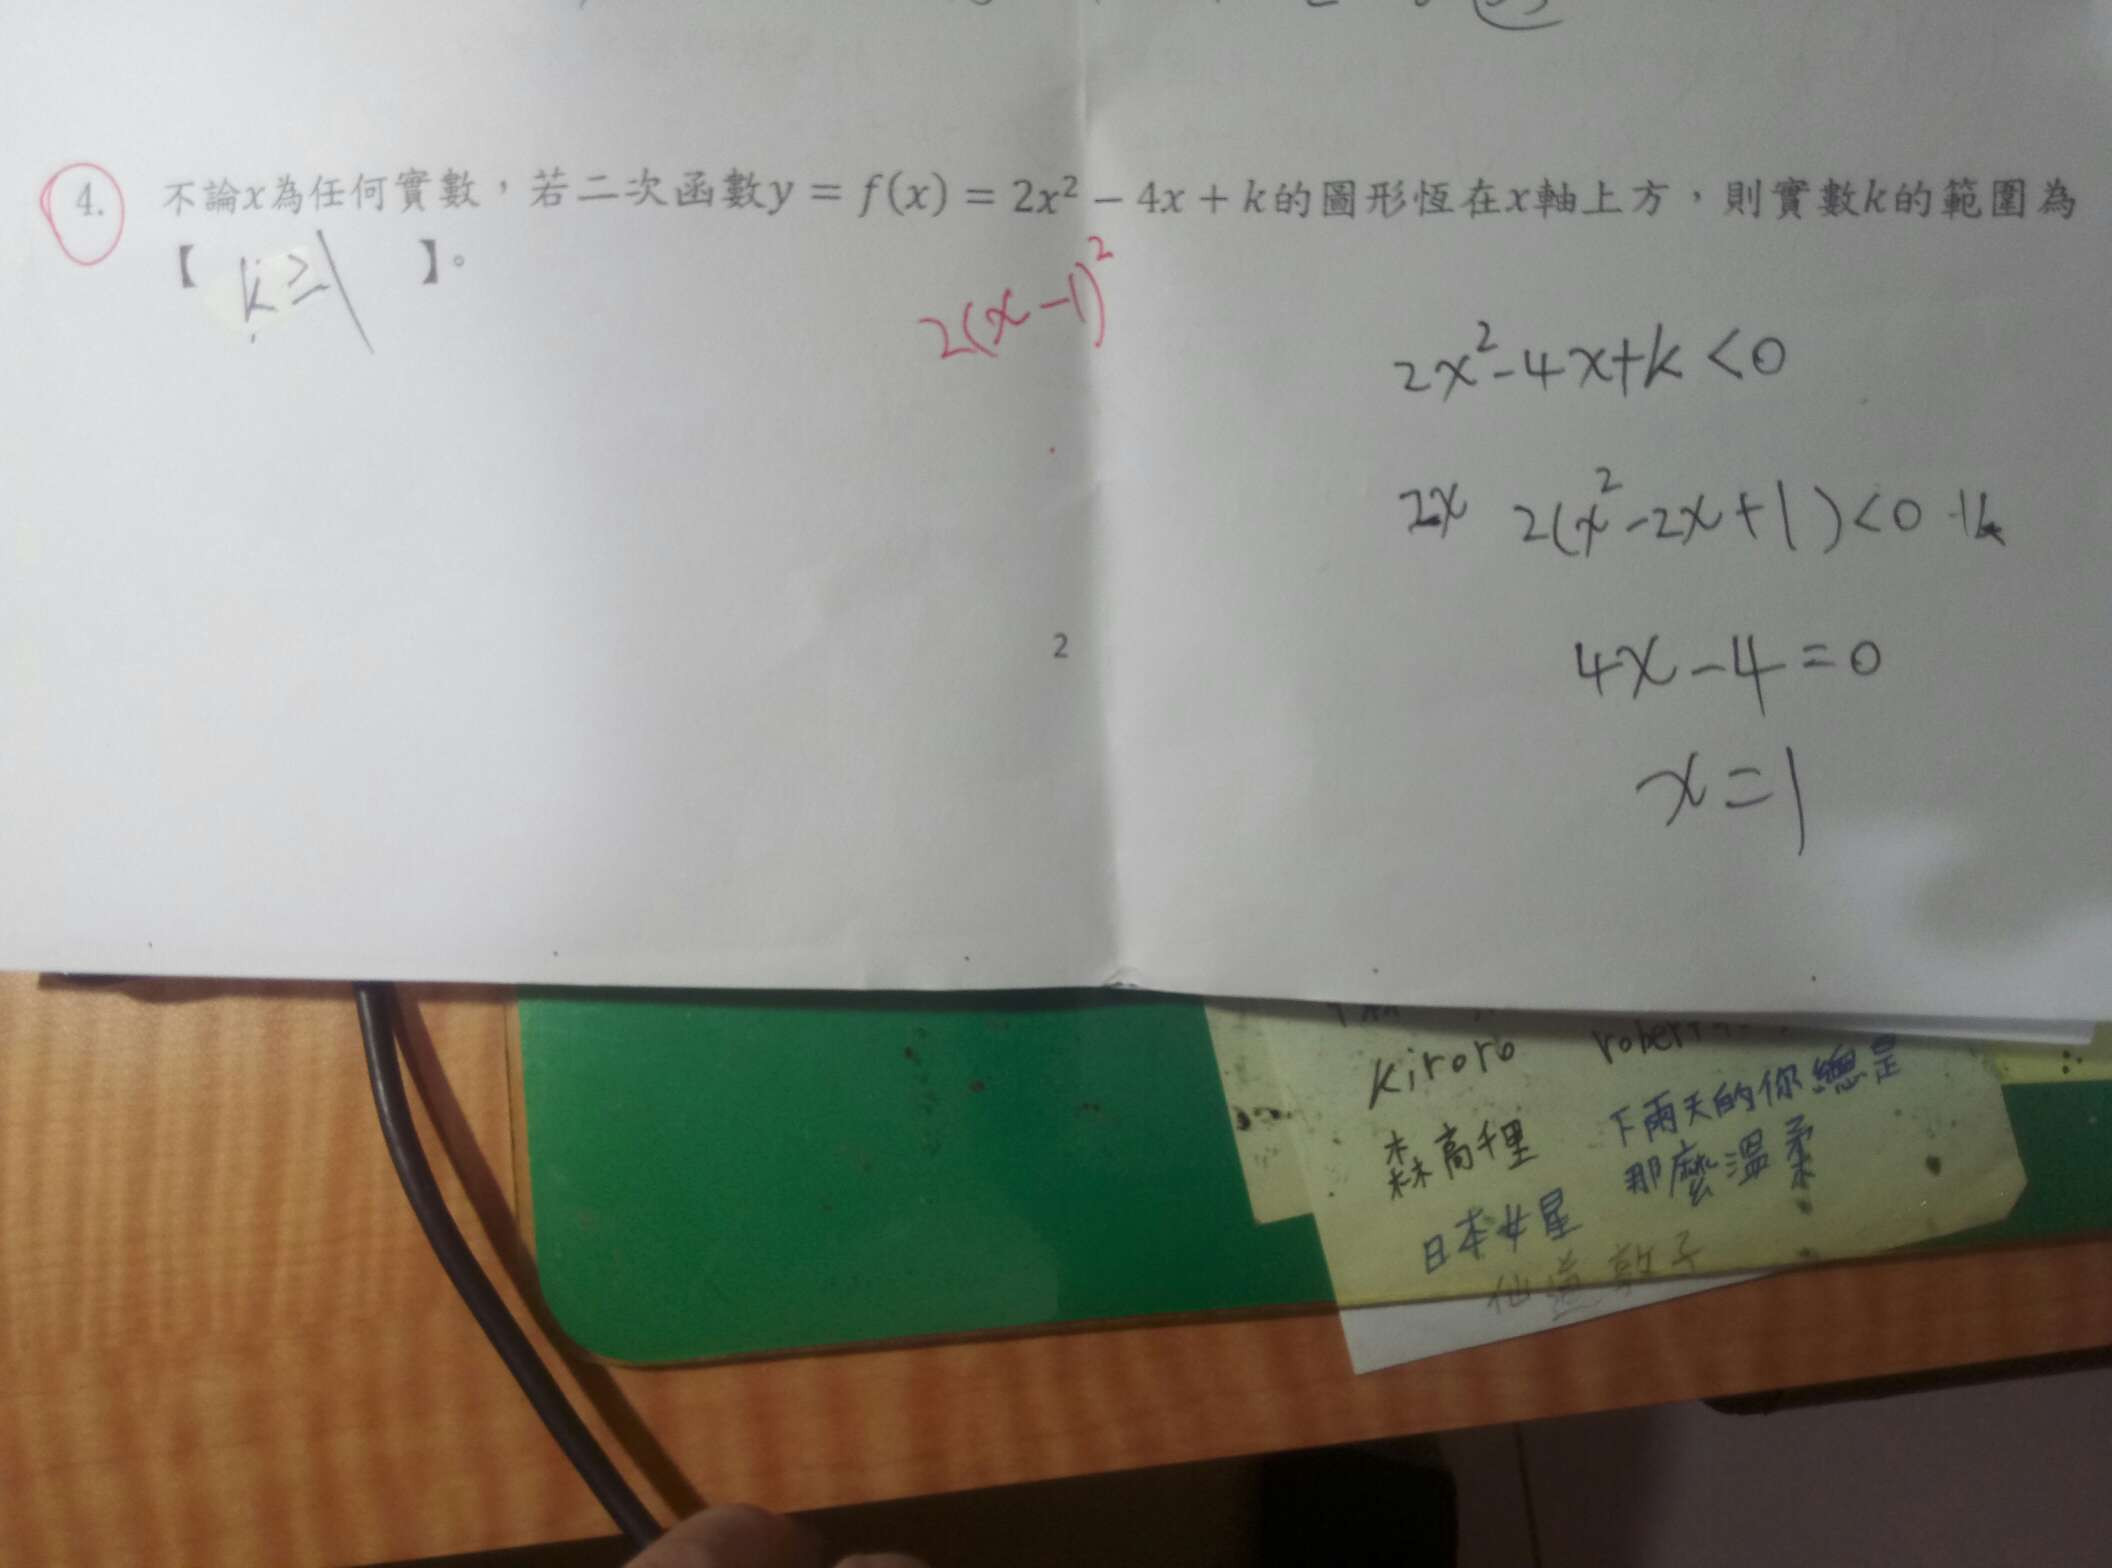 4. 不論x為任何實數，若二次函數y = f(x) = 2x² − 4x + k的圖形恆在x軸上方，則實數k的範圍為
【 k ≥ 1 】。
2(x−1)²
2x²-4x+k<0
2x 2(x²-2x+1)<0
4x-4=0
x=1
2
kiroro
森高千里 下雨天的你總是
那麼溫柔
日本女星
敦子